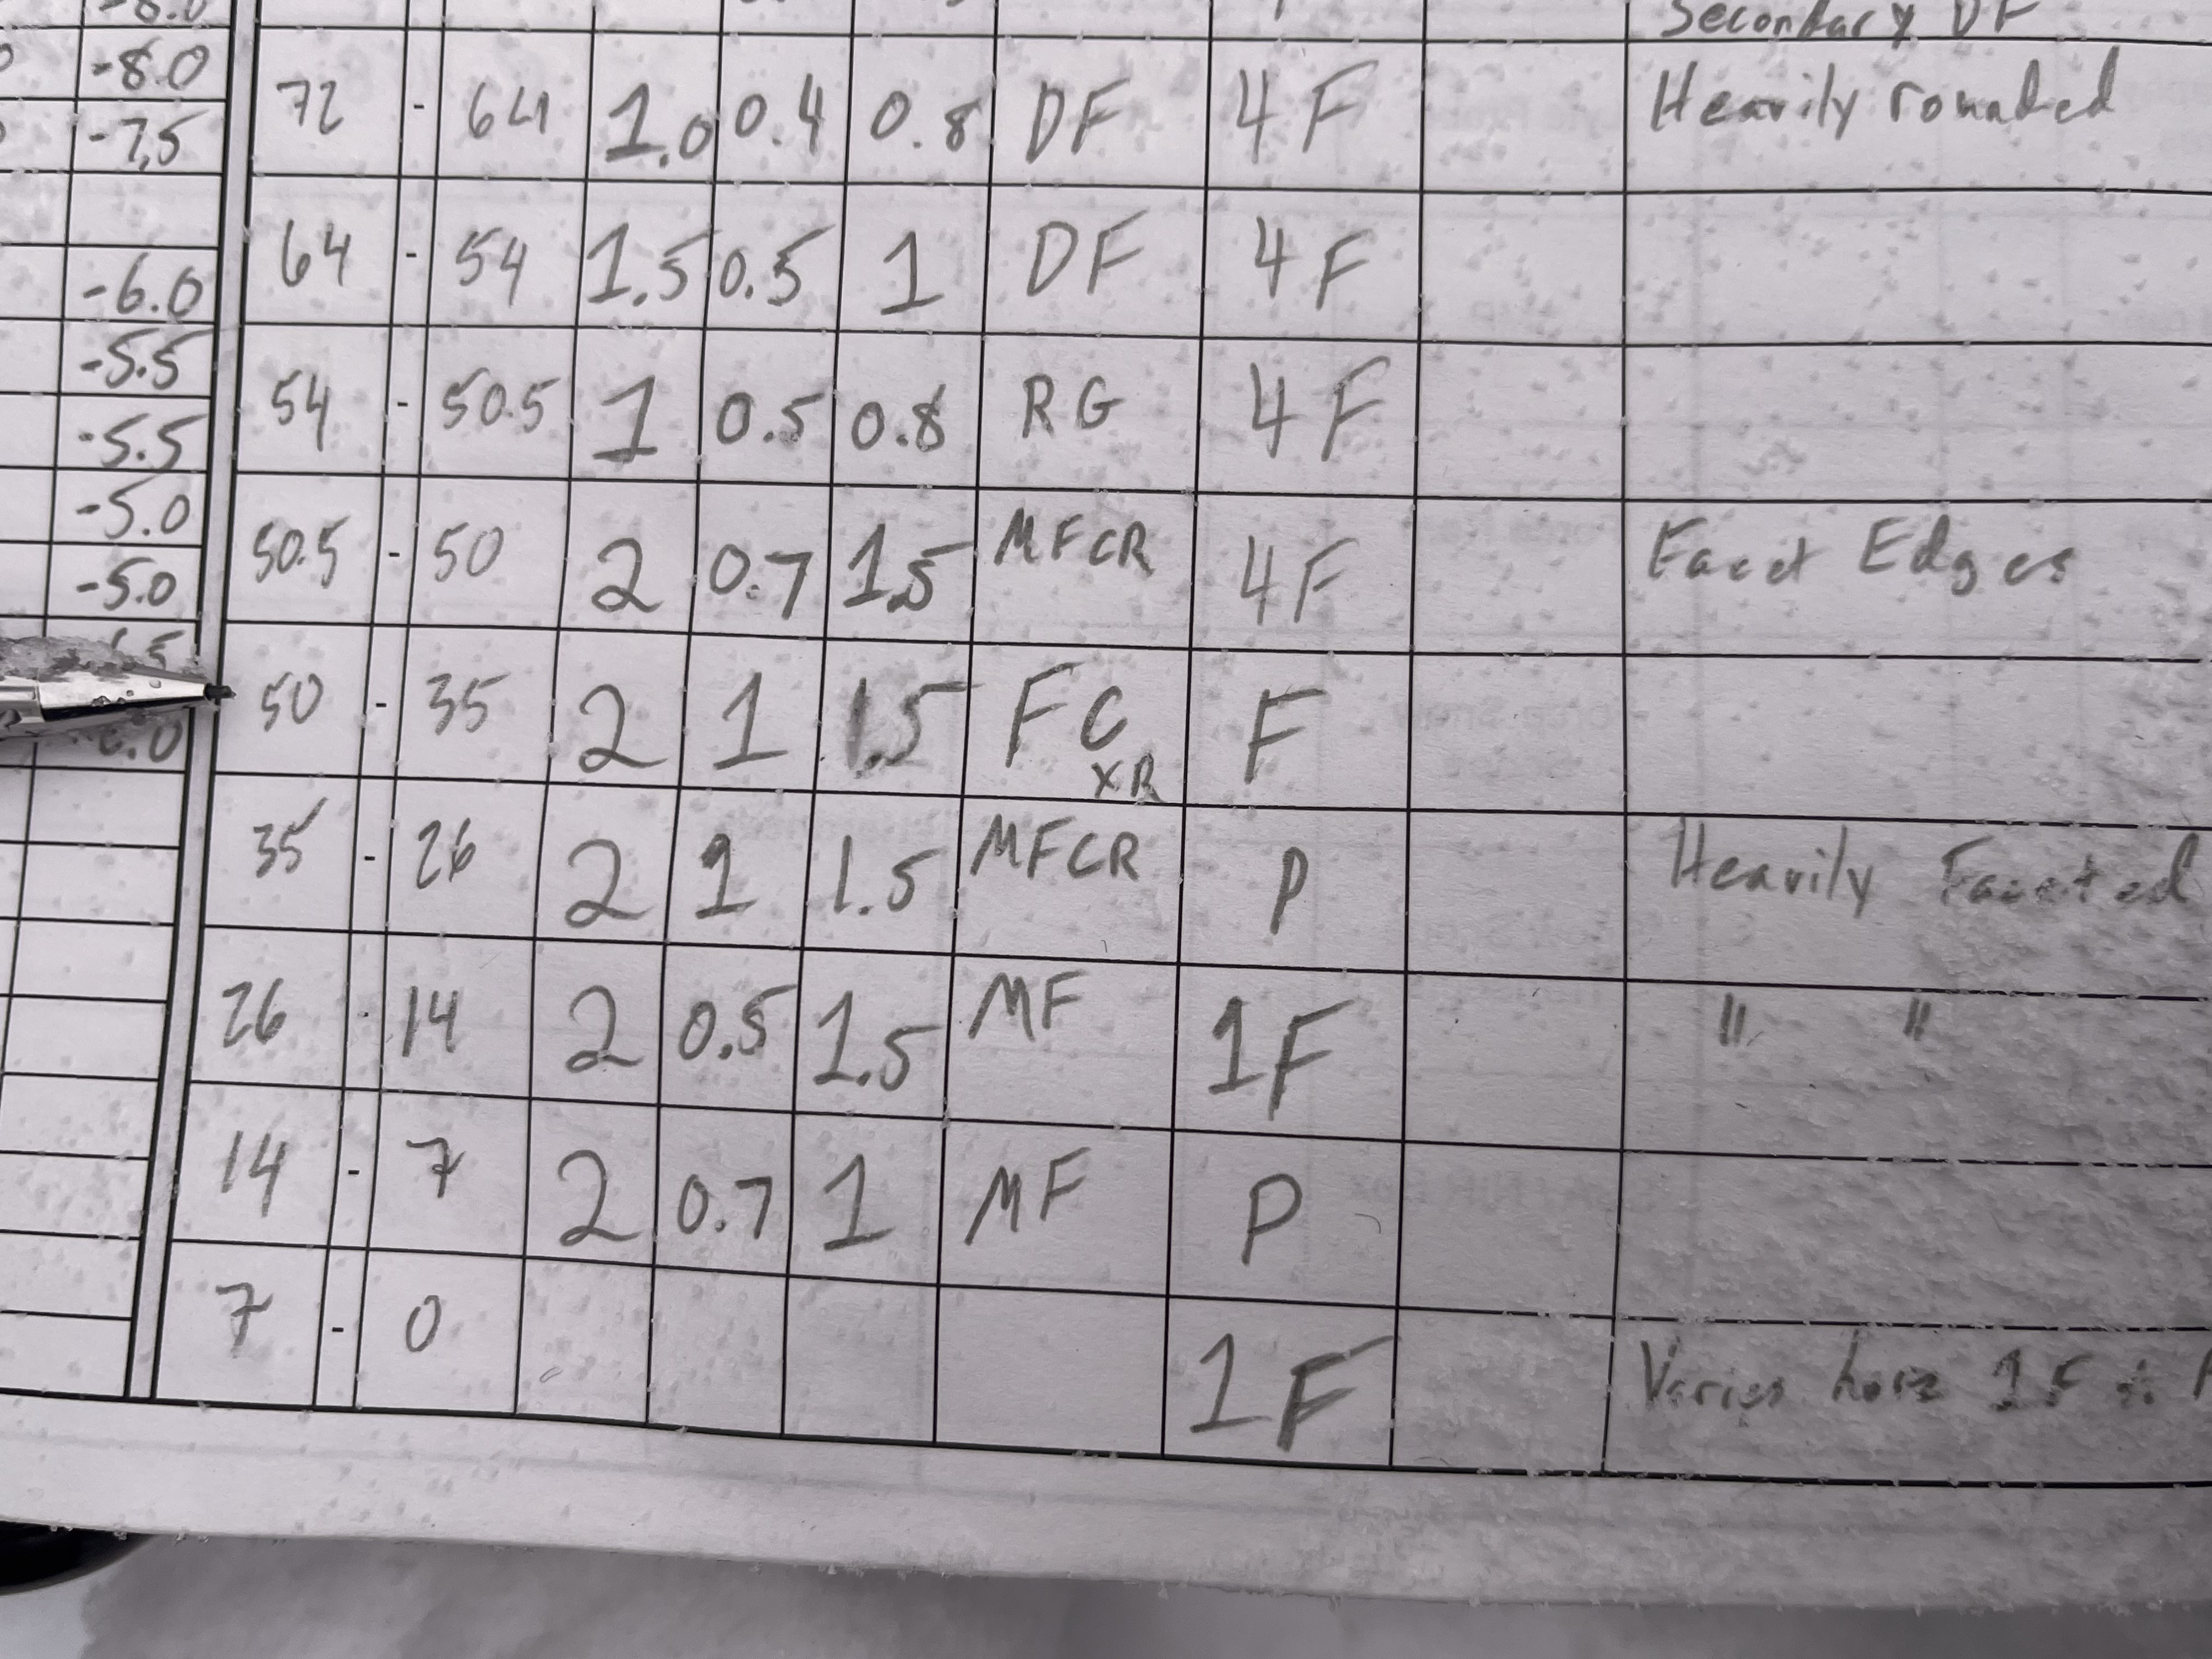 Secondary DF
-8.0
-7.5
72 - 64 1.0 0.4 0.8 DF 4F Heavily rounded
-6.0
64 - 54 1.5 0.5 1 DF 4F
-5.5
-5.5
54 - 50.5 1 0.5 0.8 RG 4F
-5.0
-5.0
50.5 - 50 2 0.7 1.5 MFCR 4F Facet Edges
50 - 35 2 1 1.5 FC XR F
35 - 26 2 1 1.5 MFCR P Heavily Faceted
26 - 14 2 0.5 1.5 MF 1F " "
14 - 7 2 0.7 1 MF P
7 - 0 1F Varies here 1F